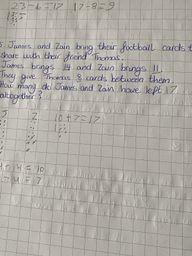 23-6=17 17-8=9
James and Zain bring their football cards t
share with their friend Thomas.
James brings 14 and Zain brings 11.
They give Thomas 8 cards between them.
How many do James and Zain have left 17
altogether?
J Z 10+7=17